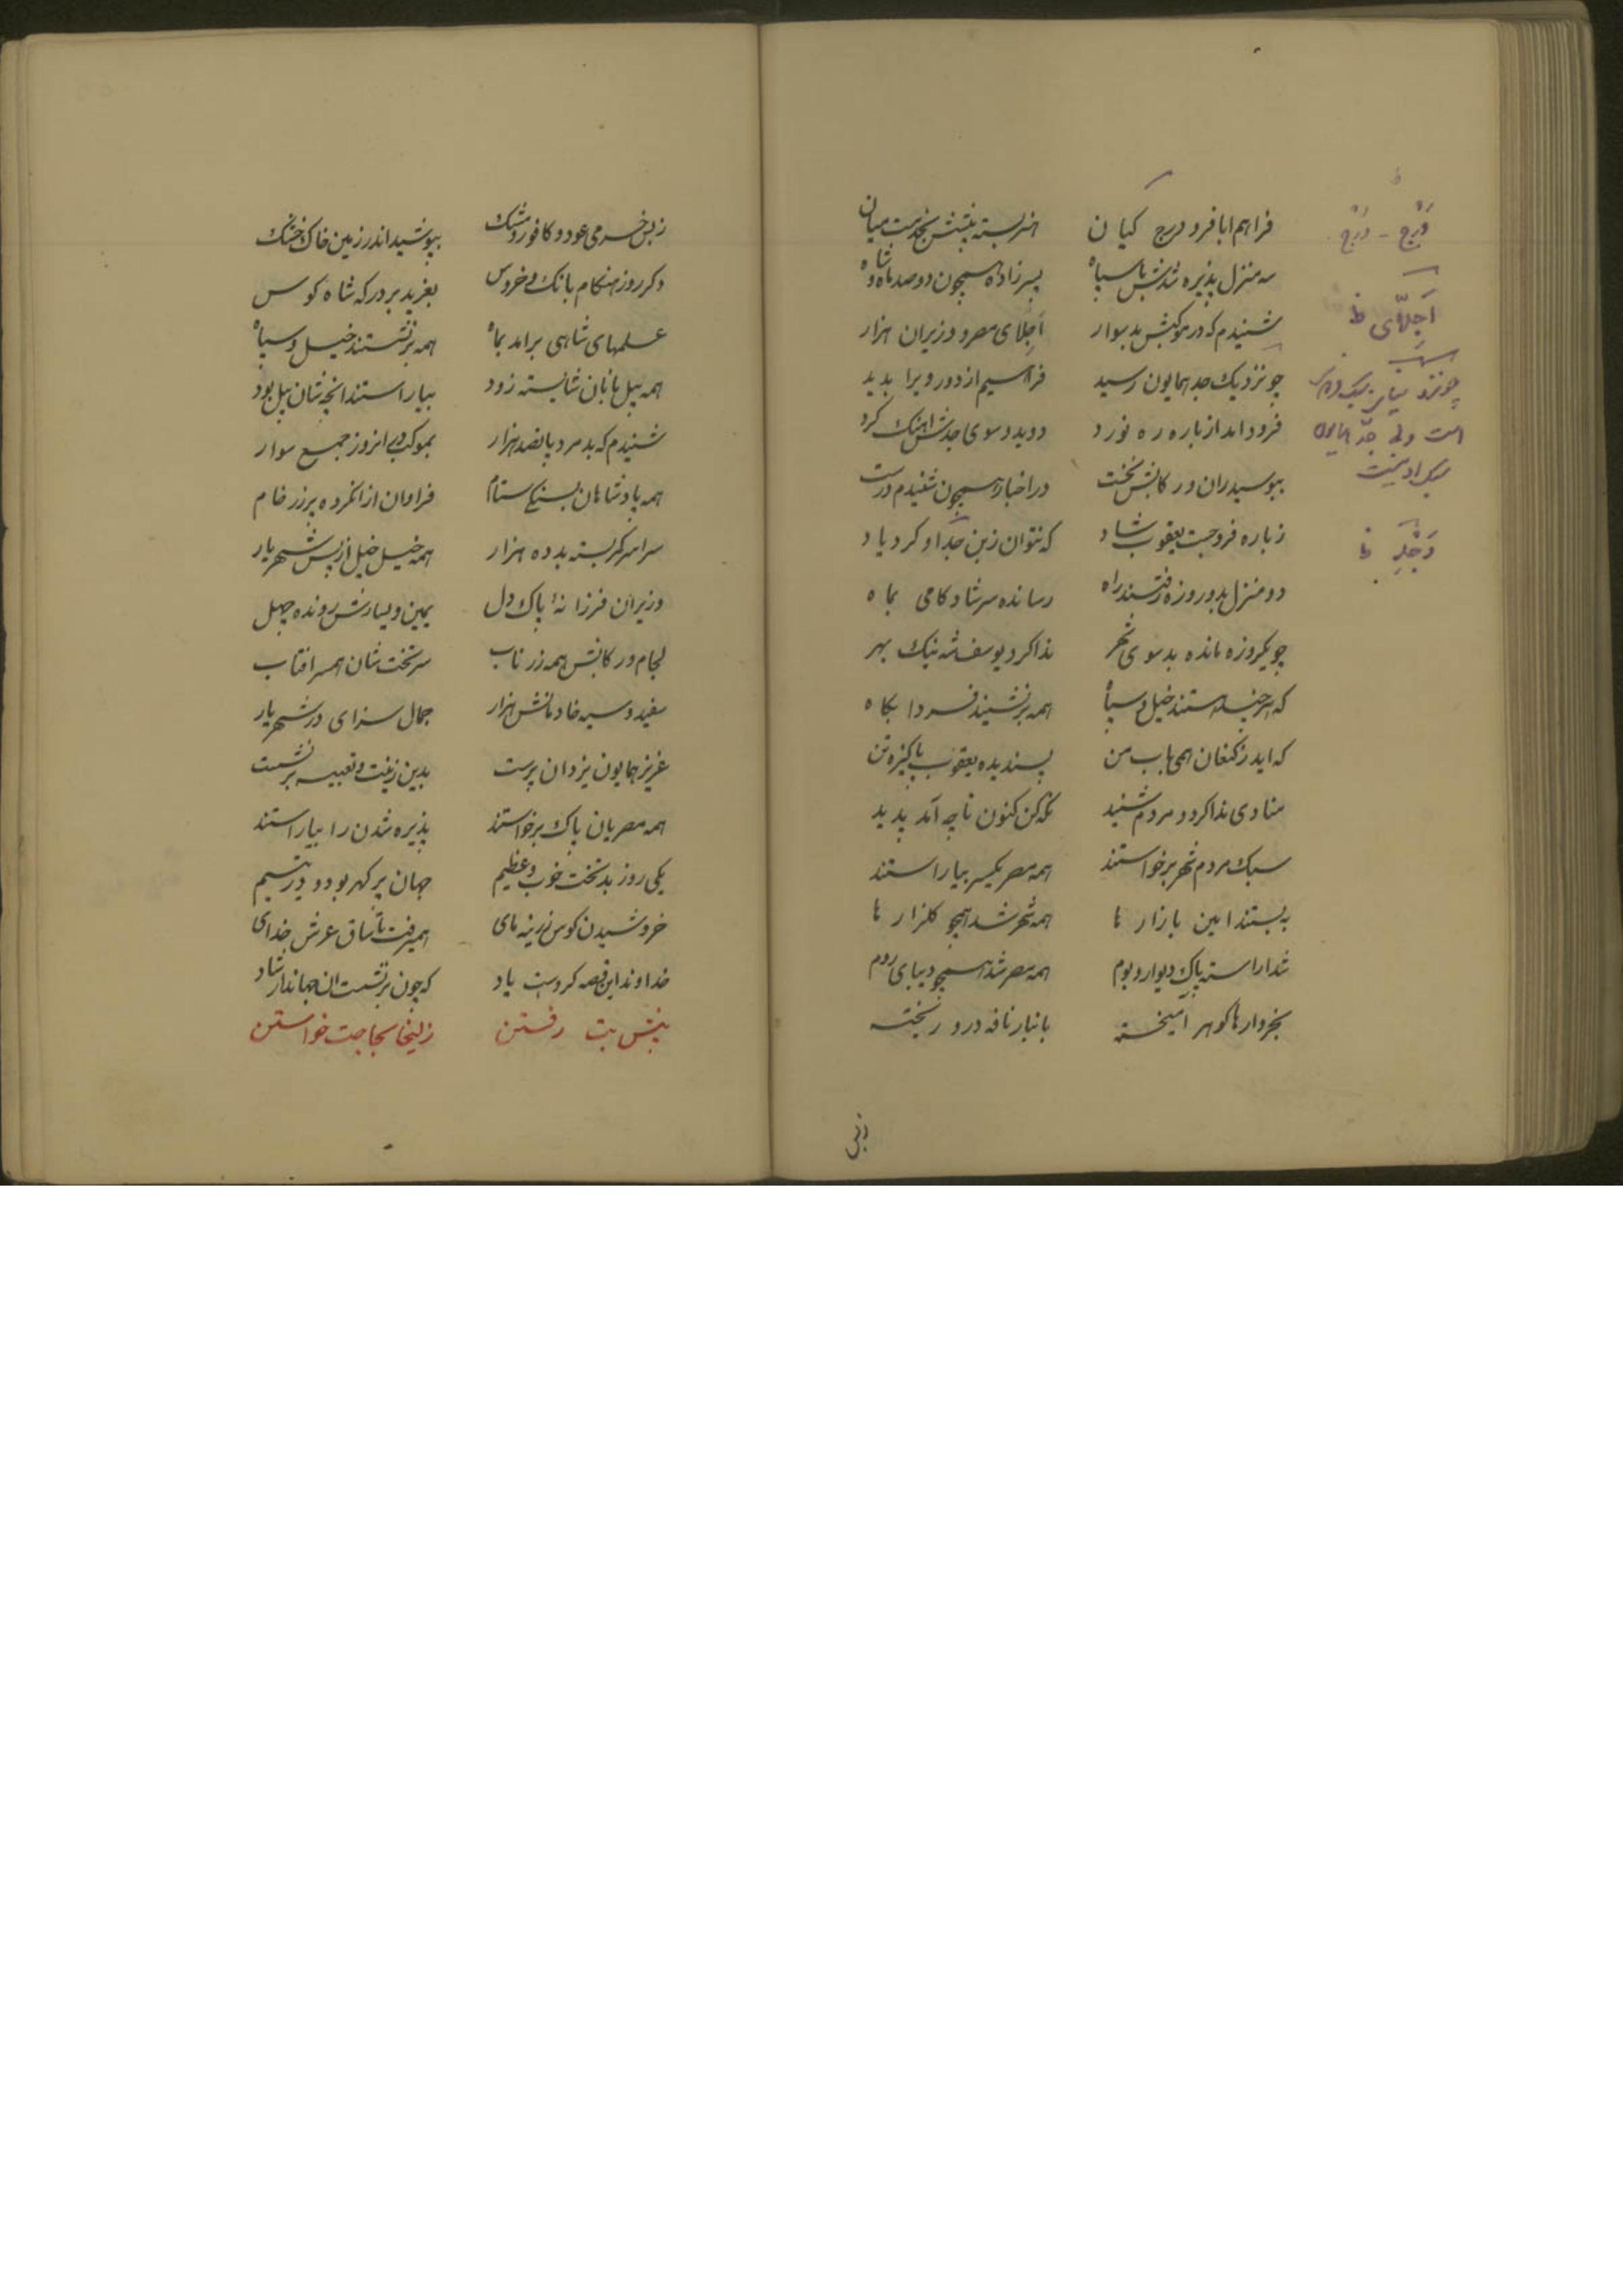 فراهم ابا فر و درج کیان
سه منزل پذیره شدش با سپاه
پسر زاده همچون دو صد ماه و شاه
شنیدم که در موکبش بد سوار
اجلای مصر و وزیران هزار
چو نزدیک جد همایون رسید
فراسیم از دور ویرا بدید
فرود امد از باره ره نورد
دوید و سوی جدش اهنک کرد
ببوسید ران و رکابش نخست
در اخبار همچون شنیدم درست
ز باره فرو جست یعقوب شاد
که نتوان زین جد او کرد یاد
دو منزل بدو روزه رفتند راه
رسانده سر شادکامی بماه
چو یکروزه مانده بد سوی شهر
ندا کرد یوسف شه نیک بهر
که هر چند هستند خیل و سپاه
همه برنشینند فردا بکاه
که اید ز کنعان همی باب من
پسندیده یعقوب پاکیزه تن
منادی ندا کرد و مردم شنید
نکه کن کنون تا چه آمد پدید
سبک مردم شهر برخواستند
همه مصر یکسر بیاراستند
به بستند ایین بازارها
همه شهر شد همچو کلزارها
شد اراسته پاک دیوار و بوم
همه مصر شد همچو دیبای روم
بخروارها کوهر آمیخته
بانبار نافه درو ریخته
اجلّای ظ
ز بس خرمی عود و کافور و مشک
بپوشید اندر زمین خاک خشک
دکر روز هنکام بانک خروس
بغرید بر درکه شاه کوس
علمهای شاهی برامد بماه
همه برنشستند خیل و سپاه
همه پیل بانان شایسته زود
بیاراستند انچه شان پیل بود
شنیدم که بد مرد پانصد هزار
بموکب در انروز جمع سوار
همه پادشاهان بسنکی ستام
فراوان از انکرده پر زر خام
سراسر کمر بسته بد ده هزار
همه خیل خیل از پس شهریار
وزیران فرزانهٔ پاک دل
یمین و یسارش رونده چهل
لجام و رکابش همه زر ناب
سر تخت شان همسر افتاب
سفید و سیه خادمانش هزار
جمال سزای در شهریار
عزیز همایون یزدان پرست
بدین زینت و تعبیه برنشست
همه مصریان پاک برخواستند
پذیره شدن را بیاراستند
یکی روز بد سخت خوب و عظیم
جهان پر کهر بود و در یتیم
خروشیدن کوس زرینه نای
همیرفت تا ساق عرش خدای
خداوند این قصه کردست یاد
که چون برنشست ان جهاندار شاد
پیش بت رفتن
زلیخا بحاجت خواستن